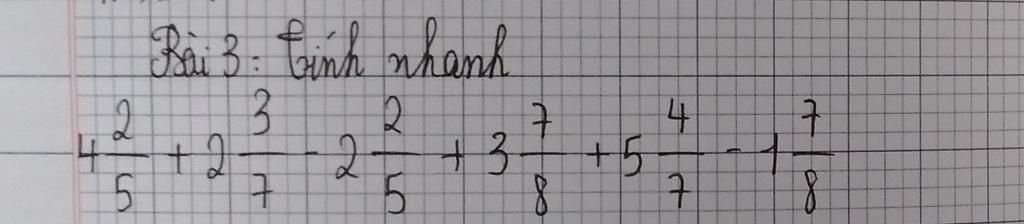 Bài 3: Tính nhanh
4 2/5 + 2 3/7 - 2 2/5 + 3 7/8 + 5 4/7 - 1 7/8